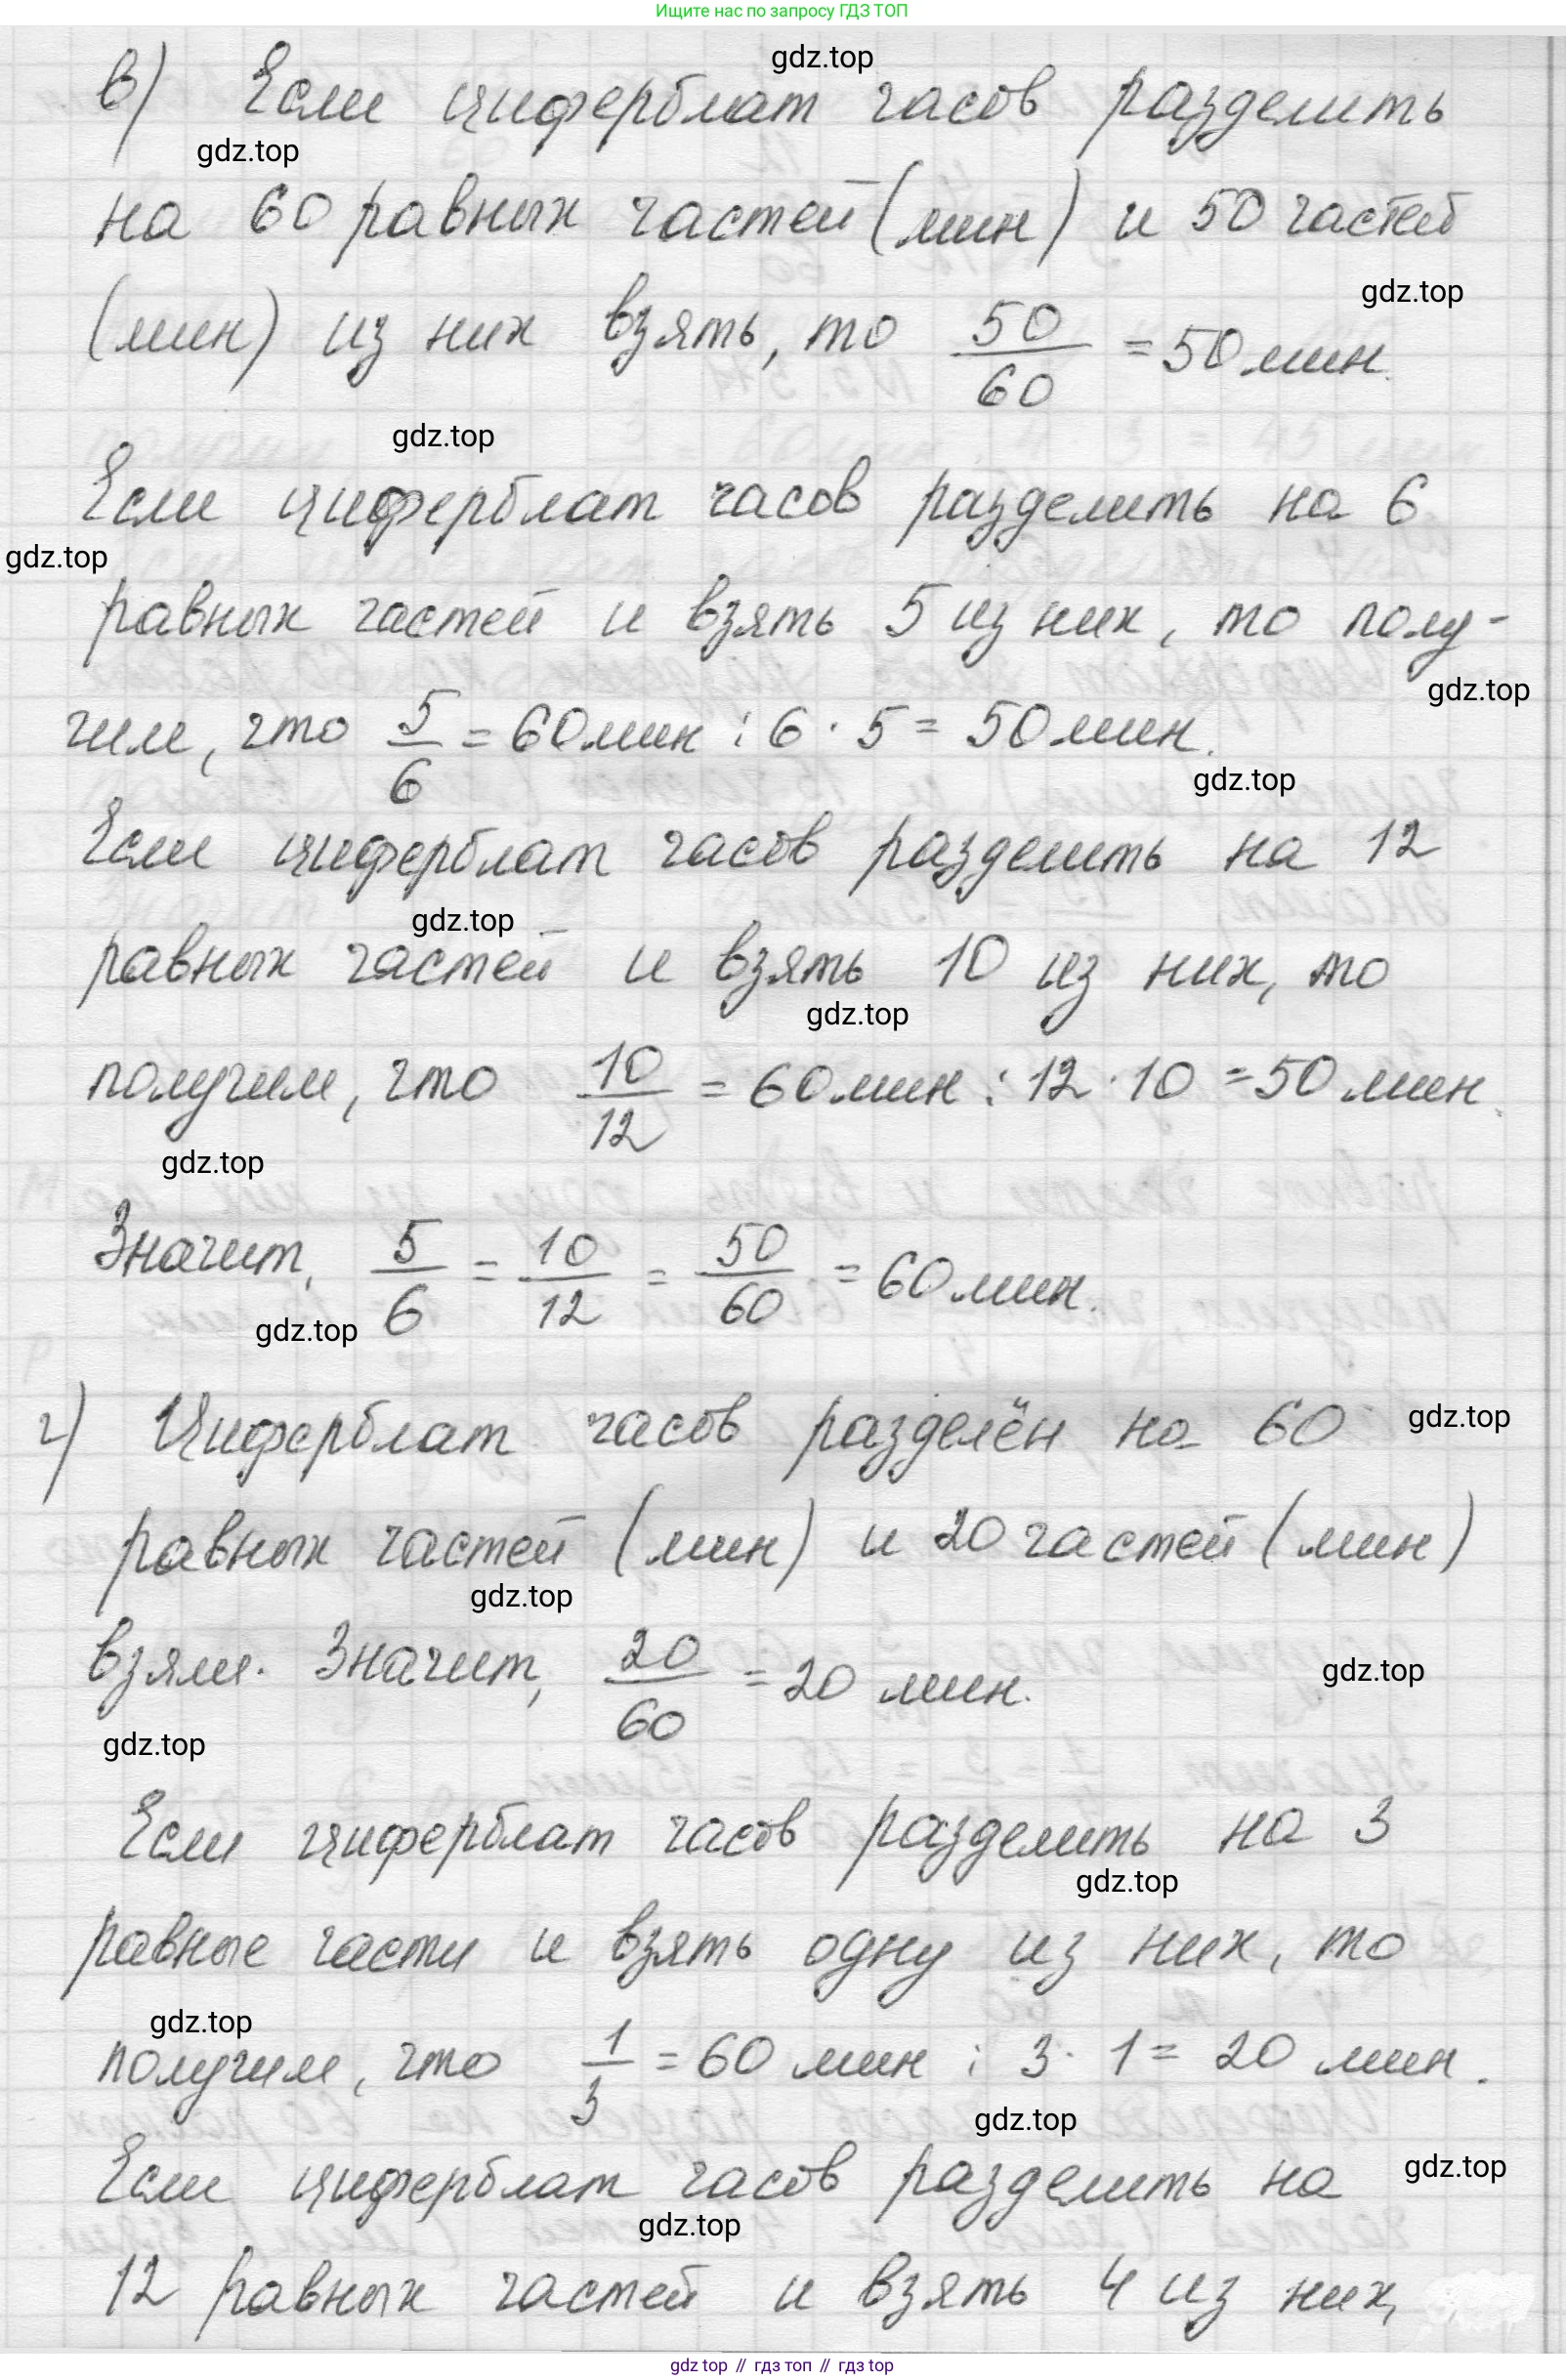 Ищите нас по запросу ГДЗ ТОП
gdz.top
в) Если циферблат часов разделить
gdz.top
на 60 равных частей (мин) и 50 частей
gdz.top
(мин) из них взять, то 50/60 = 50 мин.
gdz.top
Если циферблат часов разделить на 6
gdz.top
равных частей и взять 5 из них, то полу-
gdz.top
чим, что 5/6 = 60 мин : 6 · 5 = 50 мин.
gdz.top
Если циферблат часов разделить на 12
gdz.top
равных частей и взять 10 из них, то
gdz.top
получим, что 10/12 = 60 мин : 12 · 10 = 50 мин.
gdz.top
Значит, 5/6 = 10/12 = 50/60 = 60 мин.
gdz.top
г) Циферблат часов разделён на 60
gdz.top
равных частей (мин) и 20 частей (мин)
gdz.top
взяли. Значит, 20/60 = 20 мин.
gdz.top
gdz.top
Если циферблат часов разделить на 3
gdz.top
равные части и взять одну из них, то
gdz.top
получим, что 1/3 = 60 мин : 3 · 1 = 20 мин.
gdz.top
Если циферблат часов разделить на
gdz.top
gdz.top
12 равных частей и взять 4 из них,
gdz top // гдз топ // gdz top